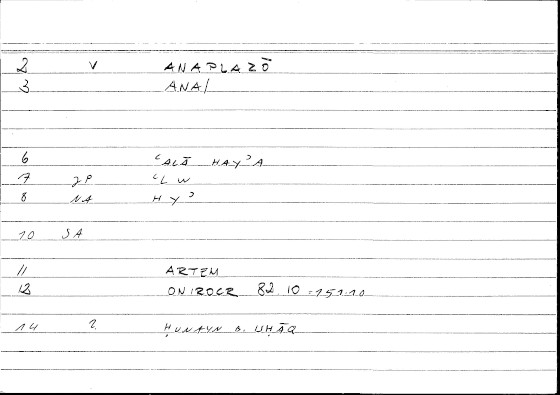 2 V ANAPLAZŌ
3 ANA/
6 ʿALĀ HAYʾA
7 JP ʿL W
8 NA HYʾ
10 SA
11 ARTEM
12 ONIROCR 82 10 = 151.10
14 2 ḤUNAYN B. ISḤĀQ